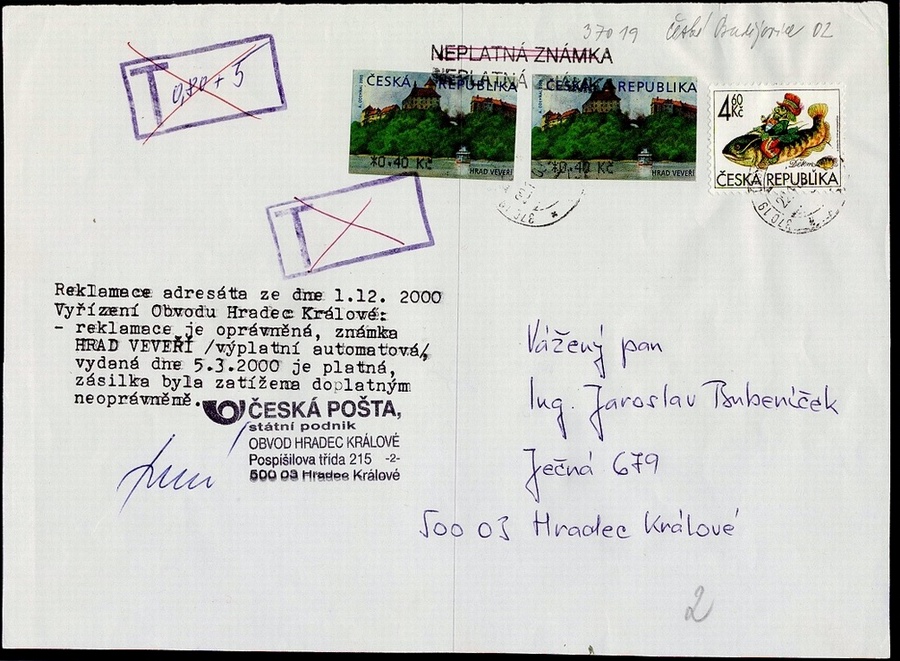 37019 České Budějovice 02
NEPLATNÁ ZNÁMKA
NEPLATNÁ ZNÁMKA
T 0,80 + 5
ČESKÁ REPUBLIKA
*0.40 Kč
HRAD VEVEŘÍ
ČESKÁ REPUBLIKA
*0.40 Kč
HRAD VEVEŘÍ
4 60 Kč
ČESKÁ REPUBLIKA
370 19
370 19
T
Reklamace adresáta ze dne 1.12. 2000
Vyřízení Obvodu Hradec Králové:
- reklamace je oprávněná, známka
HRAD VEVEŘÍ /výplatní automatová/,
vydaná dne 5.3.2000 je platná,
zásilka byla zatížena doplatným
neoprávněmě.
ČESKÁ POŠTA,
státní podnik
OBVOD HRADEC KRÁLOVÉ
Pospíšilova třída 215 -2-
500 03 Hradec Králové
Vážený pan
Ing. Jaroslav Bubeníček
Ječná 679
500 03 Hradec Králové
2